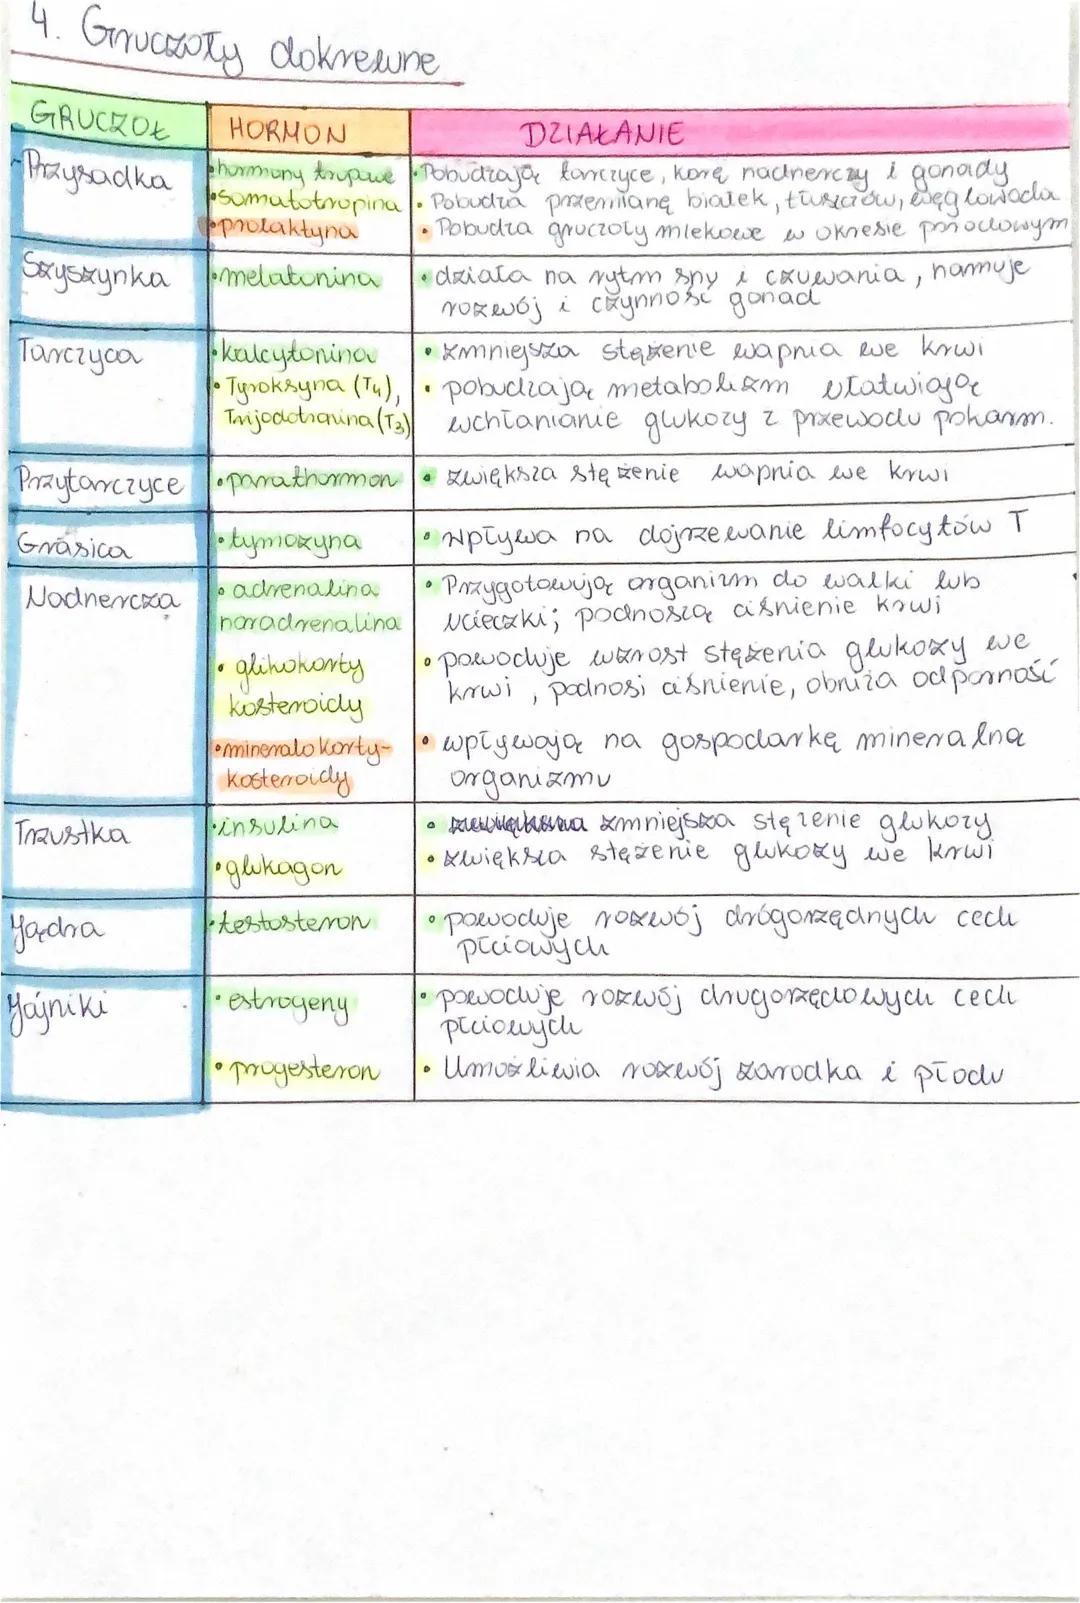 4. Gruczoły dokrewne
GRUCZOŁ
HORMON
DZIAŁANIE
Przysadka
•hormony tropowe
•somatotropina
•prolaktyna
•Pobudzają tarczyce, korę nadnerczy i gonady
• Pobudza przemianę białek, tłuszczów, węglowoda
• Pobudza gruczoły mlekowe w okresie porodowym
Szyszynka
•melatonina
• działa na rytm spy i czuwania, hamuje
rozwój i czynność gonad
Tarczyca
•kalcytonina
• Tyroksyna (T4),
Trijodotronina (T3)
• zmniejsza stężenie wapnia we krwi
• pobudzają metabolizm ułatwiają
wchłanianie glukozy z przewodu pokarm.
Przytarczyce
•parathormon
• zwiększa stężenie wapnia we krwi
Grasica
•tymozyna
• Wpływa na dojrzewanie limfocytów T
Nadnercza
• adrenalina
noradrenalina
• glikokorty
kosteroidy
•mineralokorty-
kosteroidy
• Przygotowują organizm do walki lub
ucieczki; podnoszą ciśnienie krwi
• powoduje wzrost stężenia glukozy we
krwi, podnosi ciśnienie, obniża odporność
• wpływają na gospodarkę mineralną
organizmu
Trzustka
•insulina
•glukagon
• zmniejsza stężenie glukozy
• zwiększa stężenie glukozy we krwi
Jądra
•testosteron
• powoduje rozwój drógorzędnych cech
płciowych
Jájniki
• estrogeny
• progesteron
• powoduje rozwój drugorzędowych cech
płciowych
• Umożliwia rozwój zarodka i płodu